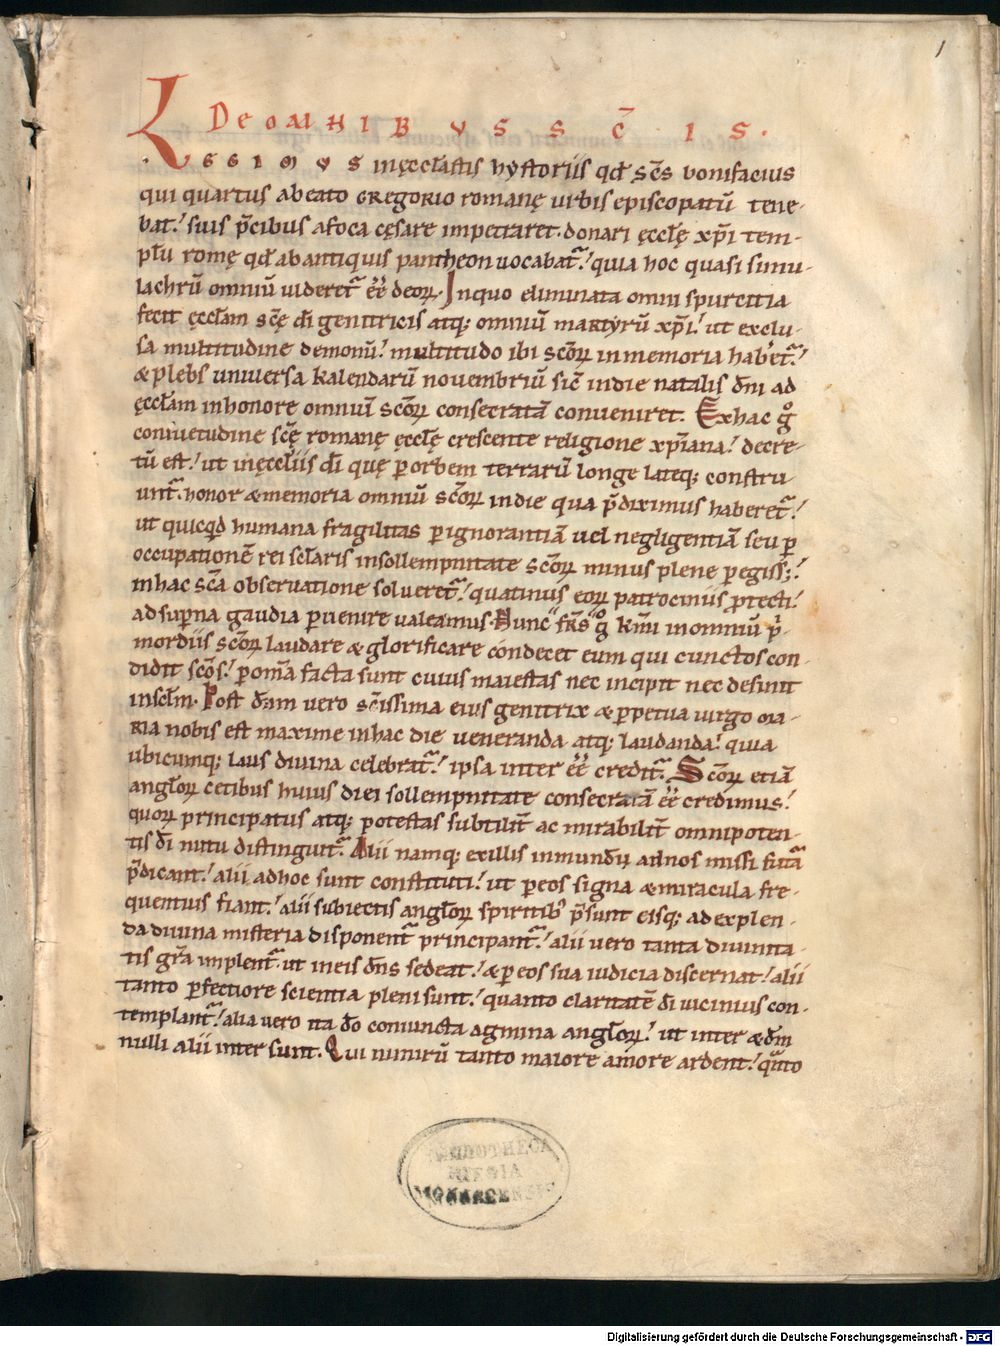 1
DE OMNIBVS SC̄IS.
LEGIMVS inęcclasticis hystoriis qd̄ sc̄s bonifacius
qui quartus abeato GREGORIO romanę urbis episcopatū tene-
bat! suis p̄cibus afoca cęsare impetraret. donari ęccłę xp̄i tem-
płū romę qd̄ abantiquis pantheon uocabat̄! quia hoc quasi simu-
lachrū omniū uideret̄ ēē deoꝝ. Inquo eliminata omni spurcitia
fecit ęccłam sc̄ę dī genitricis atq; omniū martyrū xp̄i! ut exclu-
sa multitudine demonū! multitudo ibi sc̄oꝝ inmemoria haberet̄!
&plebs uniuersa kalendarū nouembriū sic̄ indie natalis dn̄i ad
ęccłam inhonore omniū sc̄oꝝ consecratā conueniret. Exhac gͦ
consuetudine sc̄ę romanę ęccłę crescente religione xp̄iana! decre-
tū est! ut inęccłiis dī quę ꝑorbem terrarū longe lateq; constru-
unt̄. honor &memoria omniū sc̄oꝝ indie qua p̄diximus haberet̄!
ut quicqd humana fragilitas ꝑignorantiā uel negligentiā seu ꝑ
occupationē rei scłaris insollempnitate sc̄oꝝ minus plene ꝑegiss;!
inhac sc̄a obseruatione solueret̄! quatinus eoꝝ patrociniis ꝓtecti!
adsuꝑna gaudia ꝑuenire ualeamus. Nunc fr̄s gͦ km̄i inomniū p̄-
mordiis sc̄oꝝ laudare & glorificare condecet eum qui cunctos con-
didit sc̄os! ꝑ om̄a facta sunt cuius maiestas nec incipit nec desinit
inscłm. Post dn̄m uero sc̄issima eius genitrix & ꝑpetua uirgo ma-
ria nobis est maxime inhac die ueneranda atq; laudanda! quia
ubicumq; laus diuina celebrat̄! ipsa inter ēē credit̄. Sc̄oꝝ etiā
angłoꝝ cetibus huius diei sollempnitate consecratā ēē credimus!
quoꝝ principatus atq; potestas subtilit̄ ac mirabilit̄ omnipoten-
tis dī nutu distinguit̄. Alii namq; exillis inmundū adnos missi futā
p̄dicant! alii adhoc sunt constituti! ut ꝑeos signa &miracula fre-
quentius fiant! alii subiectis angłoꝝ spiritib; p̄sunt eisq; adexplen-
da diuina misteria disponent̄ principant̄! alii uero tanta diuinita-
tis gr̄a implent̄. ut ineis dn̄s sedeat! &ꝑeos sua iudicia discernat! alii
tanto ꝑfectiore scientia pleni sunt! quanto claritatē dī uicinius con-
templant̄! alia uero ita dō coniuncta agmina angłoꝝ! ut inter &dm̄
nulli alii inter sunt. Qui nimirū tanto maiore amore ardent! qᵃnto
BIBLIOTHECA
REGIA
MONACENSIS
Digitalisierung gefördert durch die Deutsche Forschungsgemeinschaft - DFG